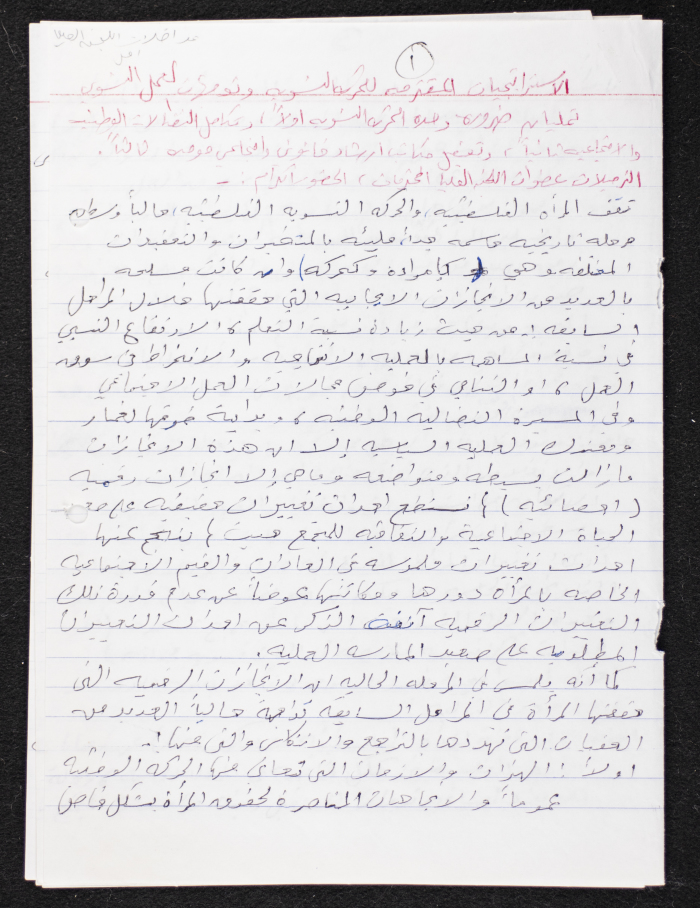 مداخلات اللجنة العليا
١
الاستراتيجيات المقترحه للحركه النسويه وتوجهات العمل النسوي
ضرورة وحدة الحركه النسويه اولاً، وتكامل النضالات الوطنيه
والاجتماعيه ثانياً، وتفعيل مكاتب ارشاد قانوني واجتماعي موحده ثالثاً.
تقف المرأه الفلسطينيه، والحركه النسويه الفلسطينيه، حالياً وسط
مرحله تاريخيه حاسمه جداً، مليئه بالمتغيرات والتعقيدات
المختلفه وهي (كإمرأه وكحركه) وان كانت مسلحه
بالعديد من الانجازات الايجابيه التي حققتها خلال المراحل
السابقه :- من حيث زيادة نسبة التعلم، الارتفاع النسبي
في نسبة المساهمه بالعمليه الانتاجيه والانخراط في سوق
العمل، او التنامي في خوض مجالات العمل الاجتماعي
وفي المسيرة النضاليه الوطنيه، وبداية خوضها لغمار
ومعترك العمليه السياسيه إلا ان هذه الانجازات
مازالت بسيطه ومتواضعه وماهي إلا انجازات رقميه
(احصائيه) لم تستطع احداث تغييرات حقيقيه على صعيد
الحياة الاجتماعية والثقافيه للمجتمع حيث لم ينتج عنها
احداث تغييرات ملموسه في العادات والقيم الاجتماعيه
الخاصه بالمرأة دورها ومكانتها عوضاً عن عدم قدرة تلك
التغييرات الرقميه آنفة الذكر عن احداث التغييرات
المطلوبه على صعيد الممارسه العمليه.
كما أنه نلمس في المرحله الحاليه ان الانجازات الرقميه التي
حققتها المرأة في المراحل السابقة تواجه حالياً العديد من
العقبات التي تهددها بالتراجع والانتكاس والتي منها :-
اولاً: الهزات والازمات التي تعاني منها الحركه الوطنيه
عموماً والاتجاهات المناصرة لحقوق المرأة بشكل خاص